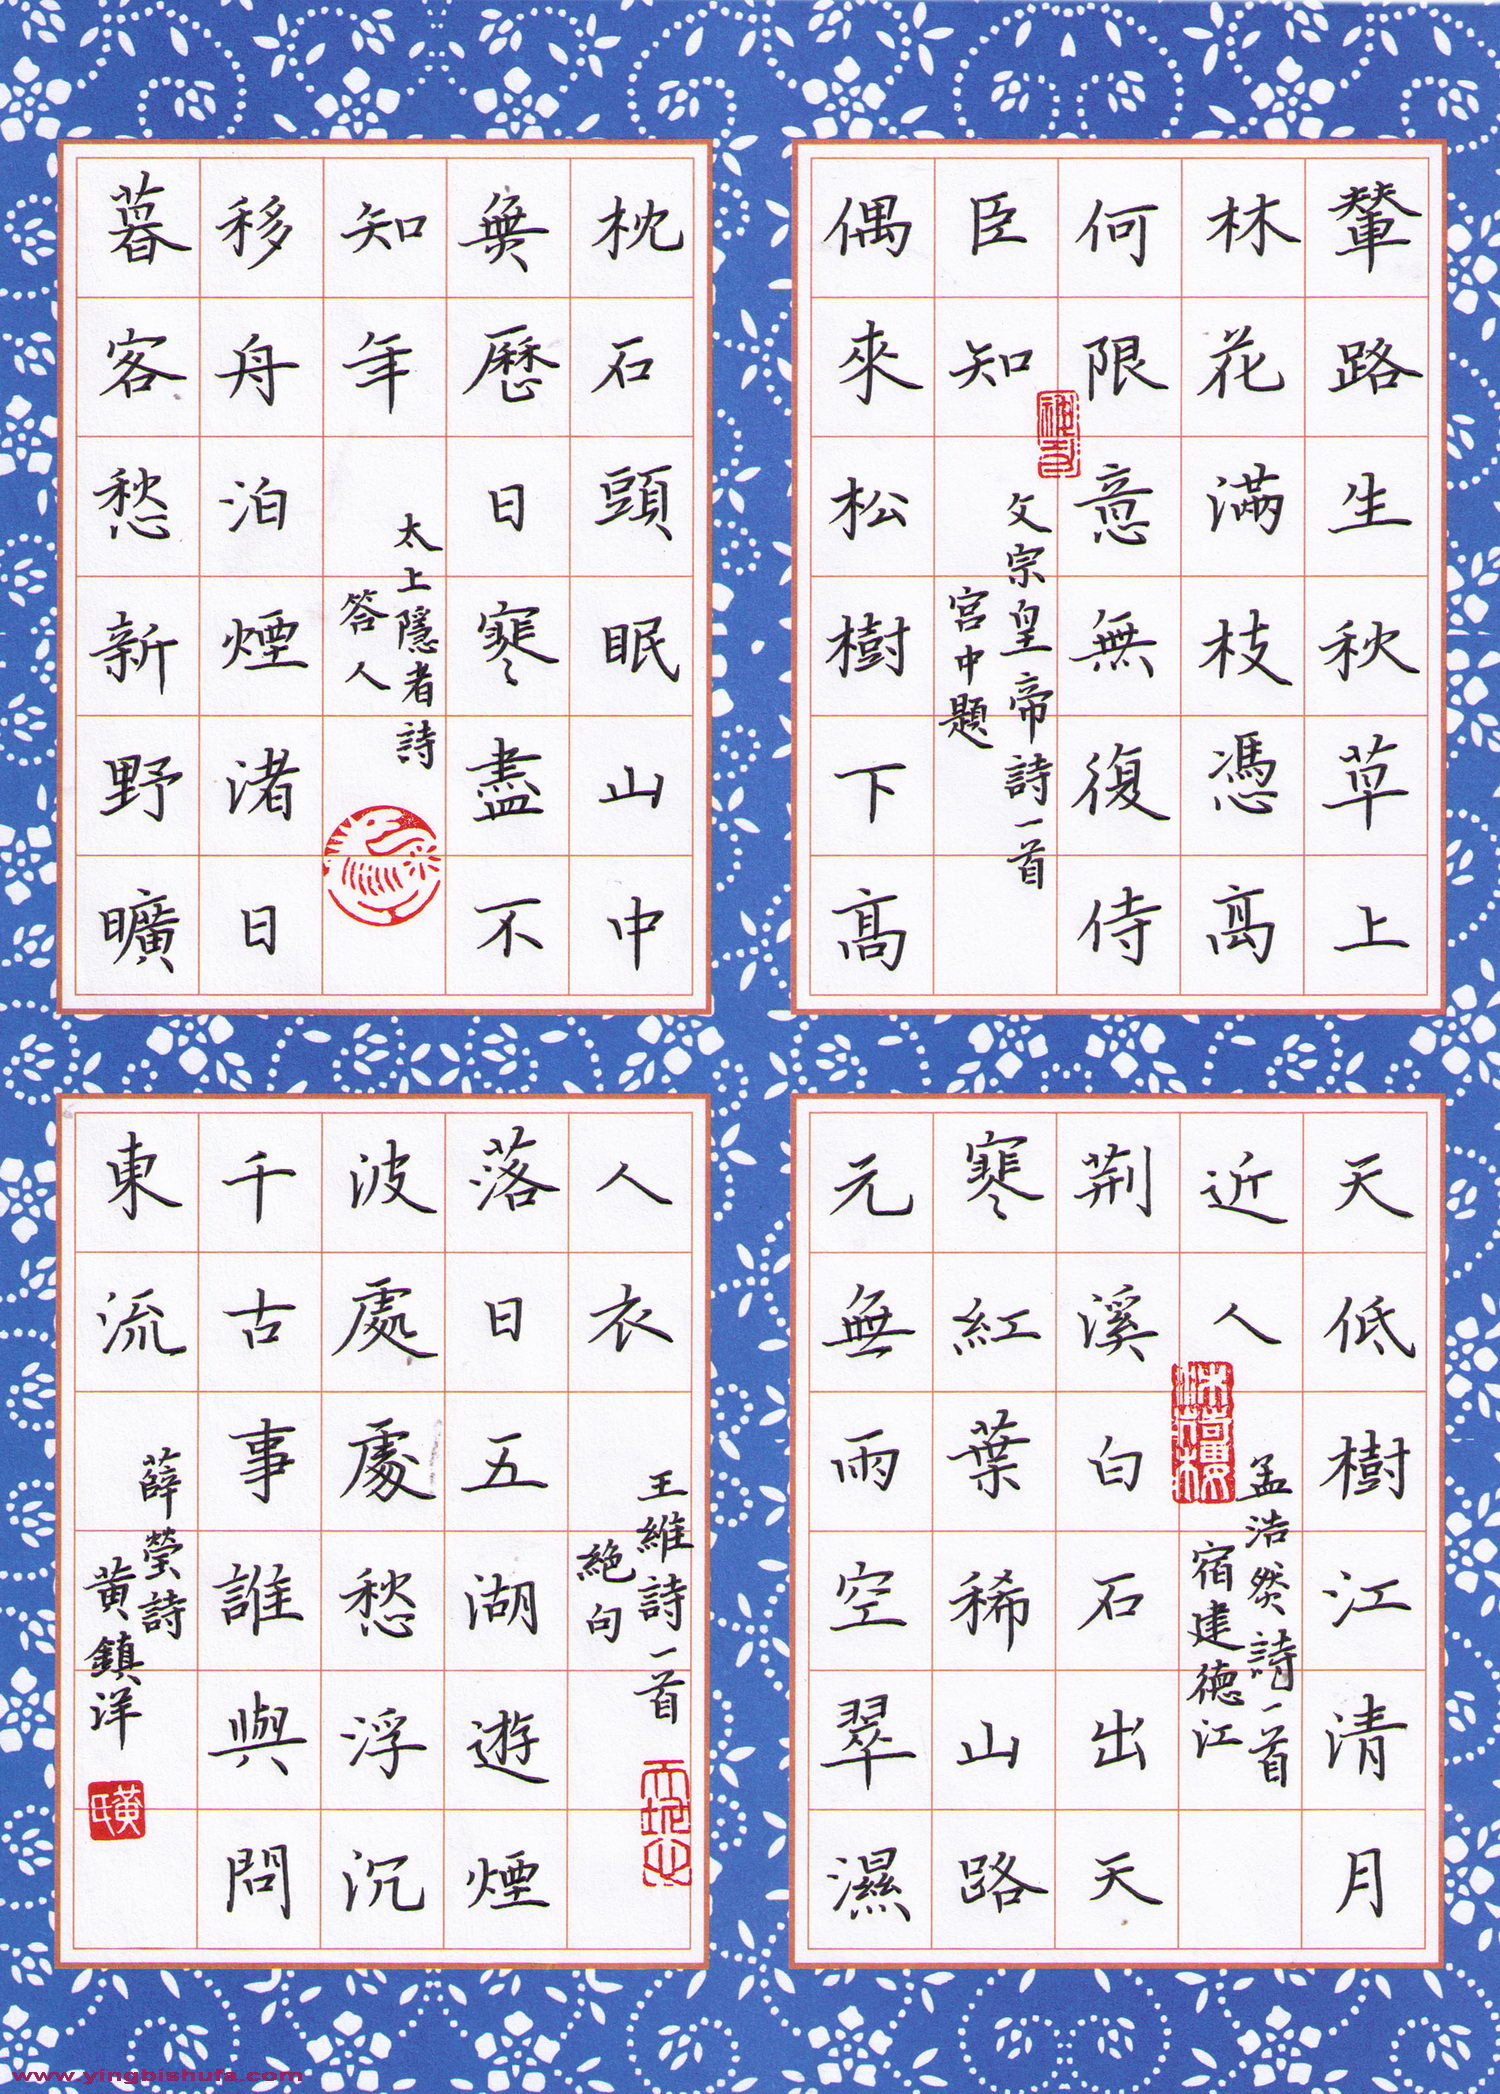 輦路生秋草上
林花滿枝憑高
何限意無復侍
臣知
文宗皇帝詩一首
宮中題
偶來松樹下高
枕石頭眠山中
無歷日寒盡不
知年
太上隱者詩
答人
移舟泊煙渚日
暮客愁新野曠
天低樹江清月
近人
孟浩然詩一首
宿建德江
荆溪白石出天
寒紅葉稀山路
元無雨空翠濕
人衣
王維詩一首
絕句
落日五湖遊煙
波處處愁浮沉
千古事誰與問
東流
薛瑩詩
黄鎮洋
黄氏
www.yingbishufa.com